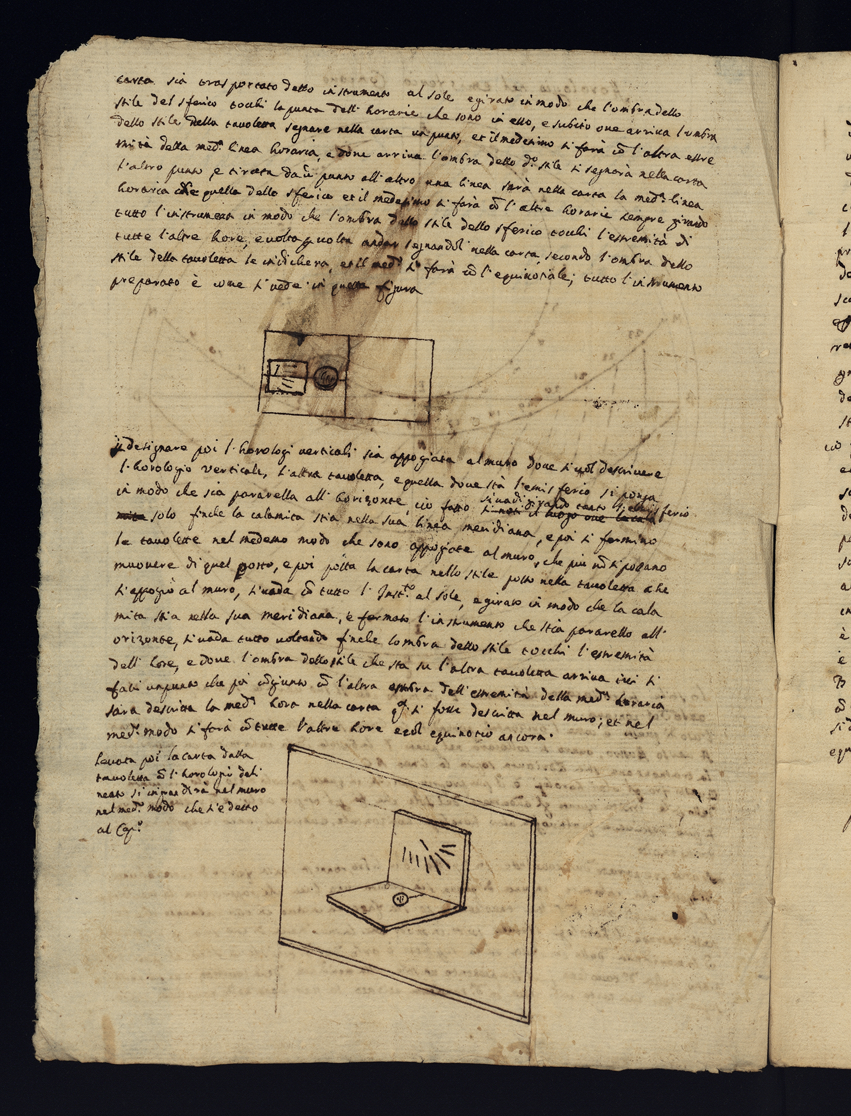 carta sia trasportato detto instrumento al sole e girato in modo che l'ombra dello
stile del sferico tocchi la punta dell' horarie che sono in esso, e subito ove arriva l'ombra
dello stile della tavoletta segnare nella carta un punto, et il medesimo si farà cõ l'altra estre
mità della med.ª linea horaria, e dove arriva l'ombra dello d.º stile si segnarà nella carta
l'altro punto, e tirata da ũ punto all'altro una linea sarà nella carta la med.ª linea
horaria che quella dello sferico et il medesimo si farà cõ l'altre horarie sempre girando
tutto l'instrumento in modo che l'ombra dello stile dello sferico tocchi l'estremità di
tutte l'altre hore, e volta volta andar segnandol nella carta, secondo l'ombra dello
stile della tavoletta le indichera, et il med.º si farà cõ l'equinotiale; tutto l'instrumento
preparato è come si vede in questa figura
designare poi l'horologi verticali sia appogiata al muro dove si vol descrivere
l'horologio verticale, l'altra tavoletta, e quella dove sta l'emisferio si ponga
in modo che sia pararella all' horizonte, ciò fatto si vadi girando tanto l'emisferio
solo finche la calamita stia nella sua linea meridiana, e poi si fermino
le tavolette nel medemo modo che sono appogiate al muro, che piu nõ si possano
muovere di quel posto, e poi posta la carta nello stile posto nella tavoletta che
s'appogiò al muro, si vada cõ tutto l' Inst.º al sole, e girato in modo che la cala
mita stia nella sua meridiana, e formato l'instrumento che stia pararello all'
orizonte, si vada tutto voltando finche l'ombra dello stile tocchi l'estremità
dell' hore, e dove l'ombra dello stile che sta su l'altra tavoletta arriva ivi si
faci un punto che poi cõgiunto cõ l'altra ombra dell'estremità della med.ª horaria
sarà descritta la med.ª hora nella carta si fosse descritta nel muro; et nel
med.º modo si farà cõ tutte l'altre hore e col equinotio ancora.
Levata poi la carta dalla
tavoletta cõ l'horologio deli
neato si ingrandirà nel muro
nel med.º modo che s'è detto
al Cap.º